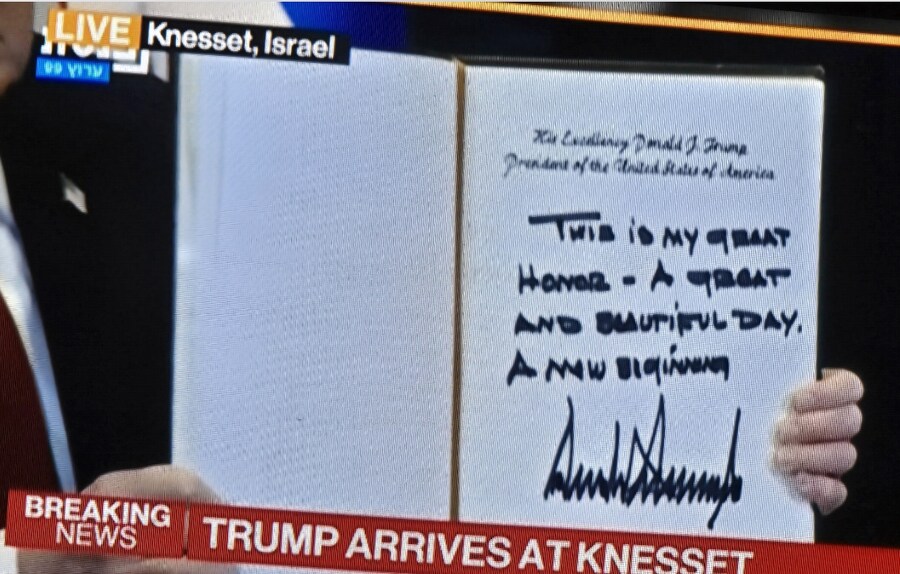 LIVE Knesset, Israel
His Excellency Donald J. Trump
President of the United States of America
THIS IS MY GREAT
HONOR - A GREAT
AND BEAUTIFUL DAY.
A NEW BIGINNING
BREAKING
NEWS
TRUMP ARRIVES AT KNESSET